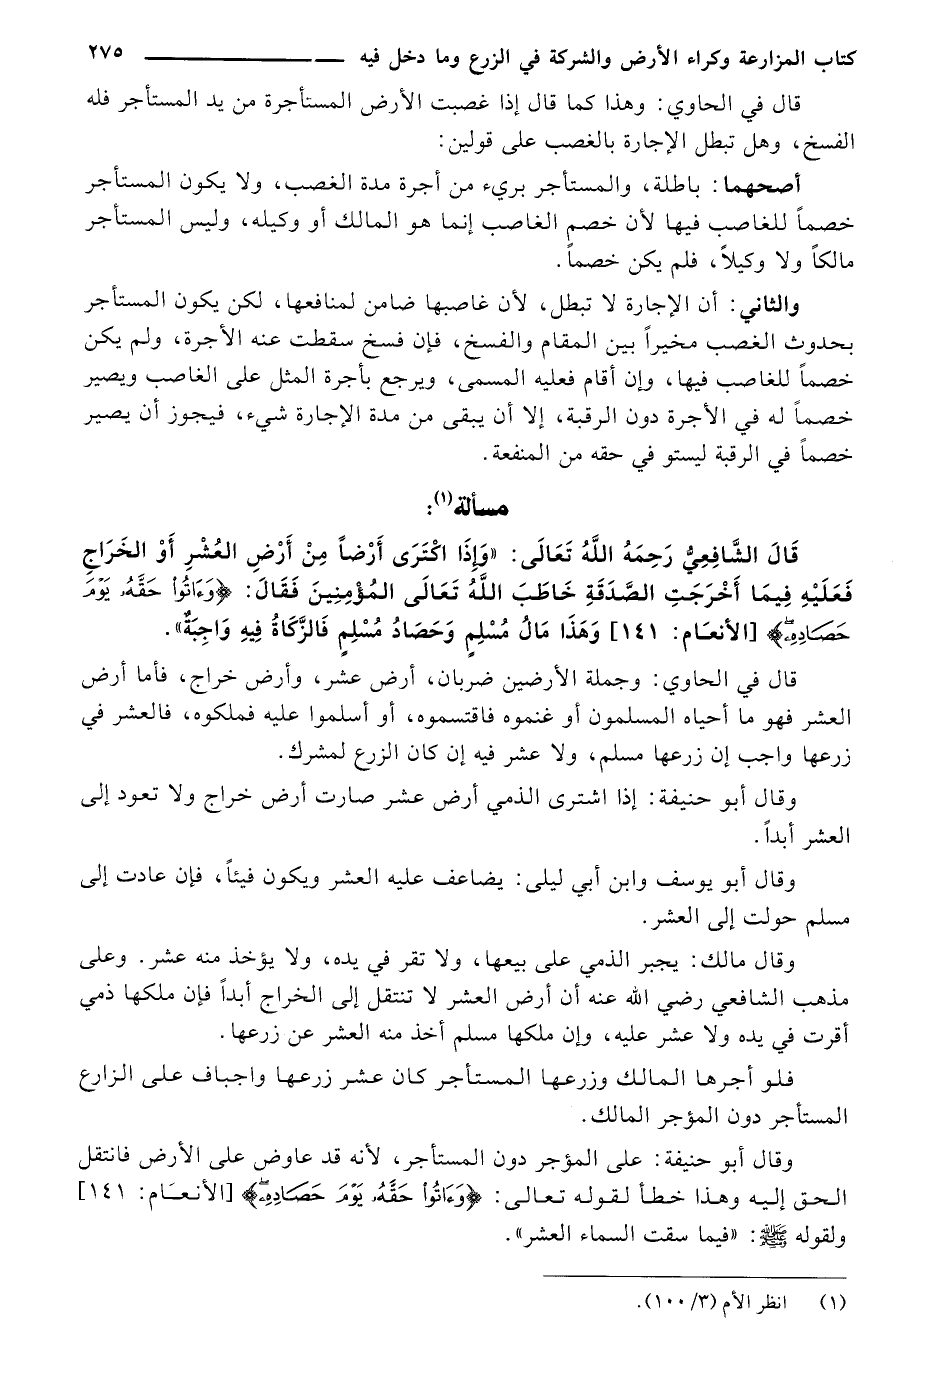 كتاب المزارعة وكراء الأرض والشركة في الزرع وما دخل فيه ٢٧٥
قال في الحاوي: وهذا كما قال إذا غصبت الأرض المستأجرة من يد المستأجر فله
الفسخ، وهل تبطل الإجارة بالغصب على قولين:
أصحهما: باطلة، والمستأجر بريء من أجرة مدة الغصب، ولا يكون المستأجر
خصماً للغاصب فيها لأن خصم الغاصب إنما هو المالك أو وكيله، وليس المستأجر
مالكاً ولا وكيلاً، فلم يكن خصماً.
والثاني: أن الإجارة لا تبطل، لأن غاصبها ضامن لمنافعها، لكن يكون المستأجر
بحدوث الغصب مخيراً بين المقام والفسخ، فإن فسخ سقطت عنه الأجرة، ولم يكن
خصماً للغاصب فيها، وإن أقام فعليه المسمى، ويرجع بأجرة المثل على الغاصب ويصير
خصماً له في الأجرة دون الرقبة، إلا أن يبقى من مدة الإجارة شيء، فيجوز أن يصير
خصماً في الرقبة ليستو في حقه من المنفعة.
مسألة(١):
قَالَ الشَّافِعِيُّ رَحِمَهُ اللَّهُ تَعَالَى: «وَإِذَا اكْتَرَى أَرْضاً مِنْ أَرْضِ العُشْرِ أَوْ الخَرَاجِ
فَعَلَيْهِ فِيمَا أَخْرَجَتِ الصَّدَقَةِ خَاطَبَ اللَّهُ تَعَالَى المُؤْمِنِينَ فَقَالَ: ﴿وَءَاتُوا۟ حَقَّهُۥ يَوْمَ
حَصَادِهِۦۖ﴾ [الأنعَام: ١٤١] وَهَذَا مَالُ مُسْلِمٍ وَحَصَادُ مُسْلِمٍ فَالزَّكَاةُ فِيهِ وَاجِبَةٌ».
قال في الحاوي: وجملة الأرضين ضربان، أرض عشر، وأرض خراج، فأما أرض
العشر فهو ما أحياه المسلمون أو غنموه فاقتسموه، أو أسلموا عليه فملكوه، فالعشر في
زرعها واجب إن زرعها مسلم، ولا عشر فيه إن كان الزرع لمشرك.
وقال أبو حنيفة: إذا اشترى الذمي أرض عشر صارت أرض خراج ولا تعود إلى
العشر أبداً.
وقال أبو يوسف وابن أبي ليلى: يضاعف عليه العشر ويكون فيئاً، فإن عادت إلى
مسلم حولت إلى العشر.
وقال مالك: يجبر الذمي على بيعها، ولا تقر في يده، ولا يؤخذ منه عشر. وعلى
مذهب الشافعي رضي الله عنه أن أرض العشر لا تنتقل إلى الخراج أبداً فإن ملكها ذمي
أقرت في يده ولا عشر عليه، وإن ملكها مسلم أخذ منه العشر عن زرعها.
فلو أجرها المالك وزرعها المستأجر كان عشر زرعها واجباف على الزارع
المستأجر دون المؤجر المالك.
وقال أبو حنيفة: على المؤجر دون المستأجر، لأنه قد عاوض على الأرض فانتقل
الحق إليه وهذا خطأ لقوله تعالى: ﴿وَءَاتُوا۟ حَقَّهُۥ يَوْمَ حَصَادِهِۦۖ﴾ [الأنعَام: ١٤١]
ولقوله ﷺ: «فيما سقت السماء العشر».
(١) انظر الأم (٣/ ١٠٠).